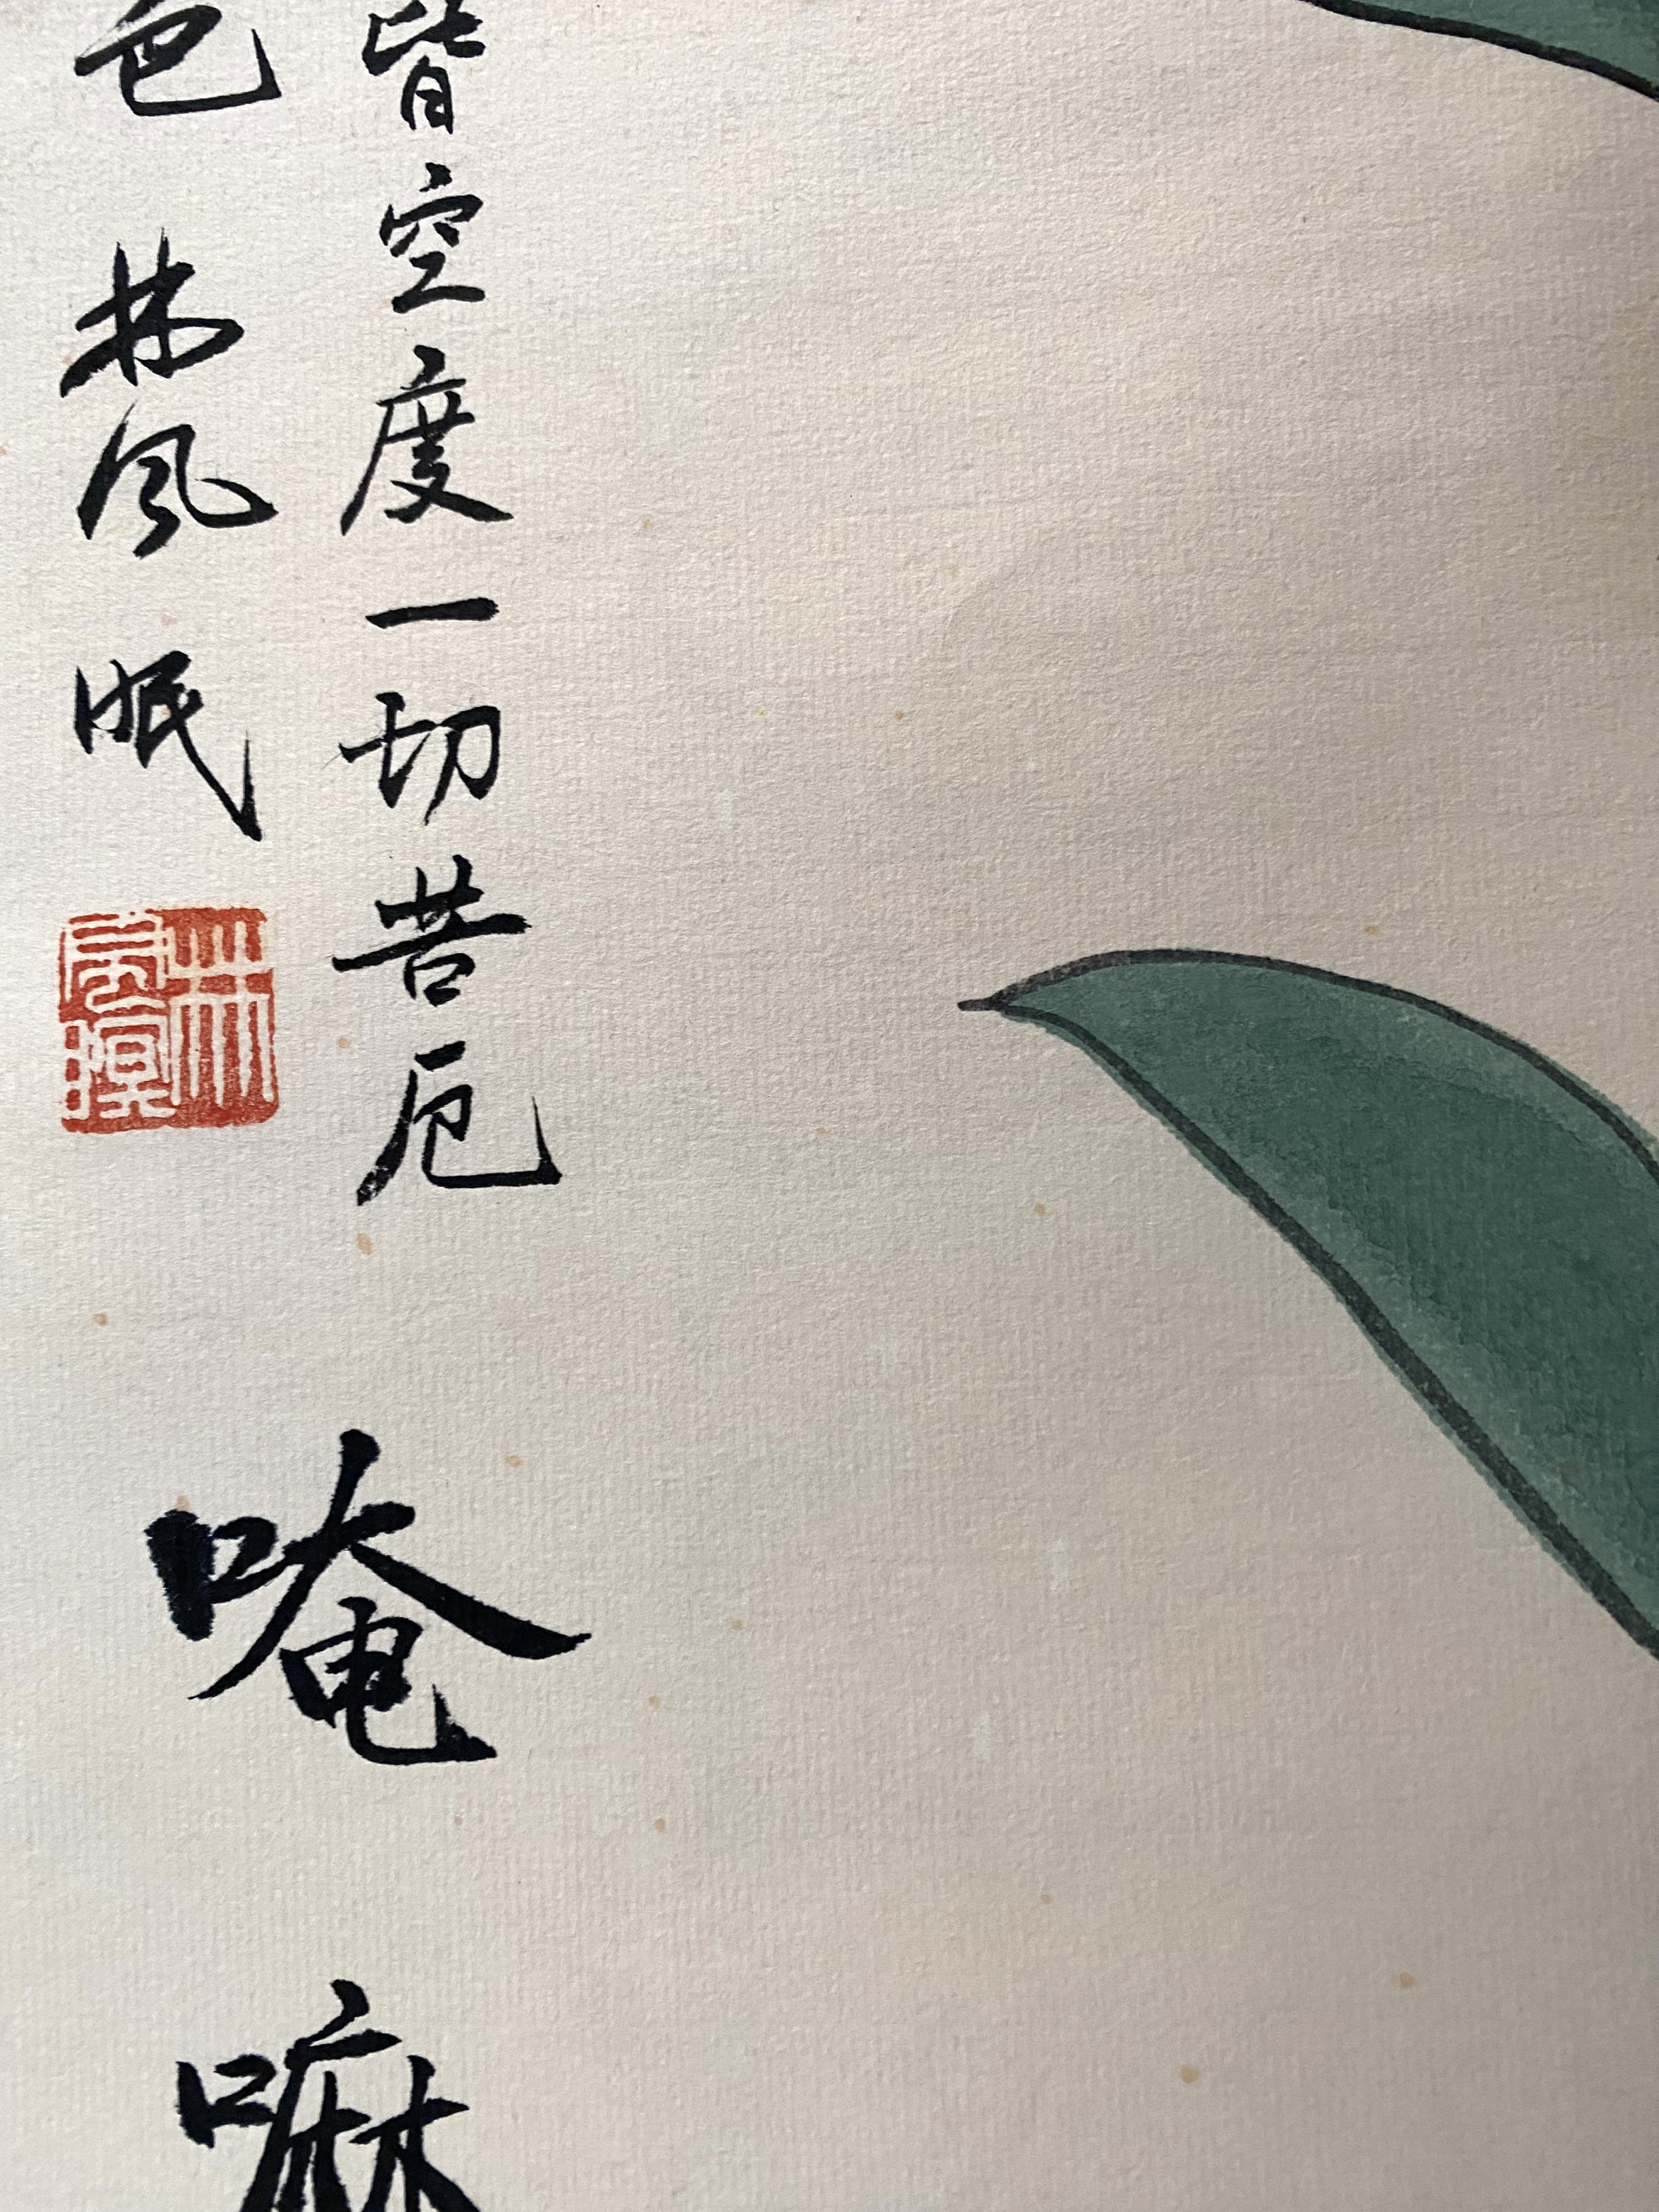 皆空度一切苦厄
色 林风眠
林風瞑
唵
嘛